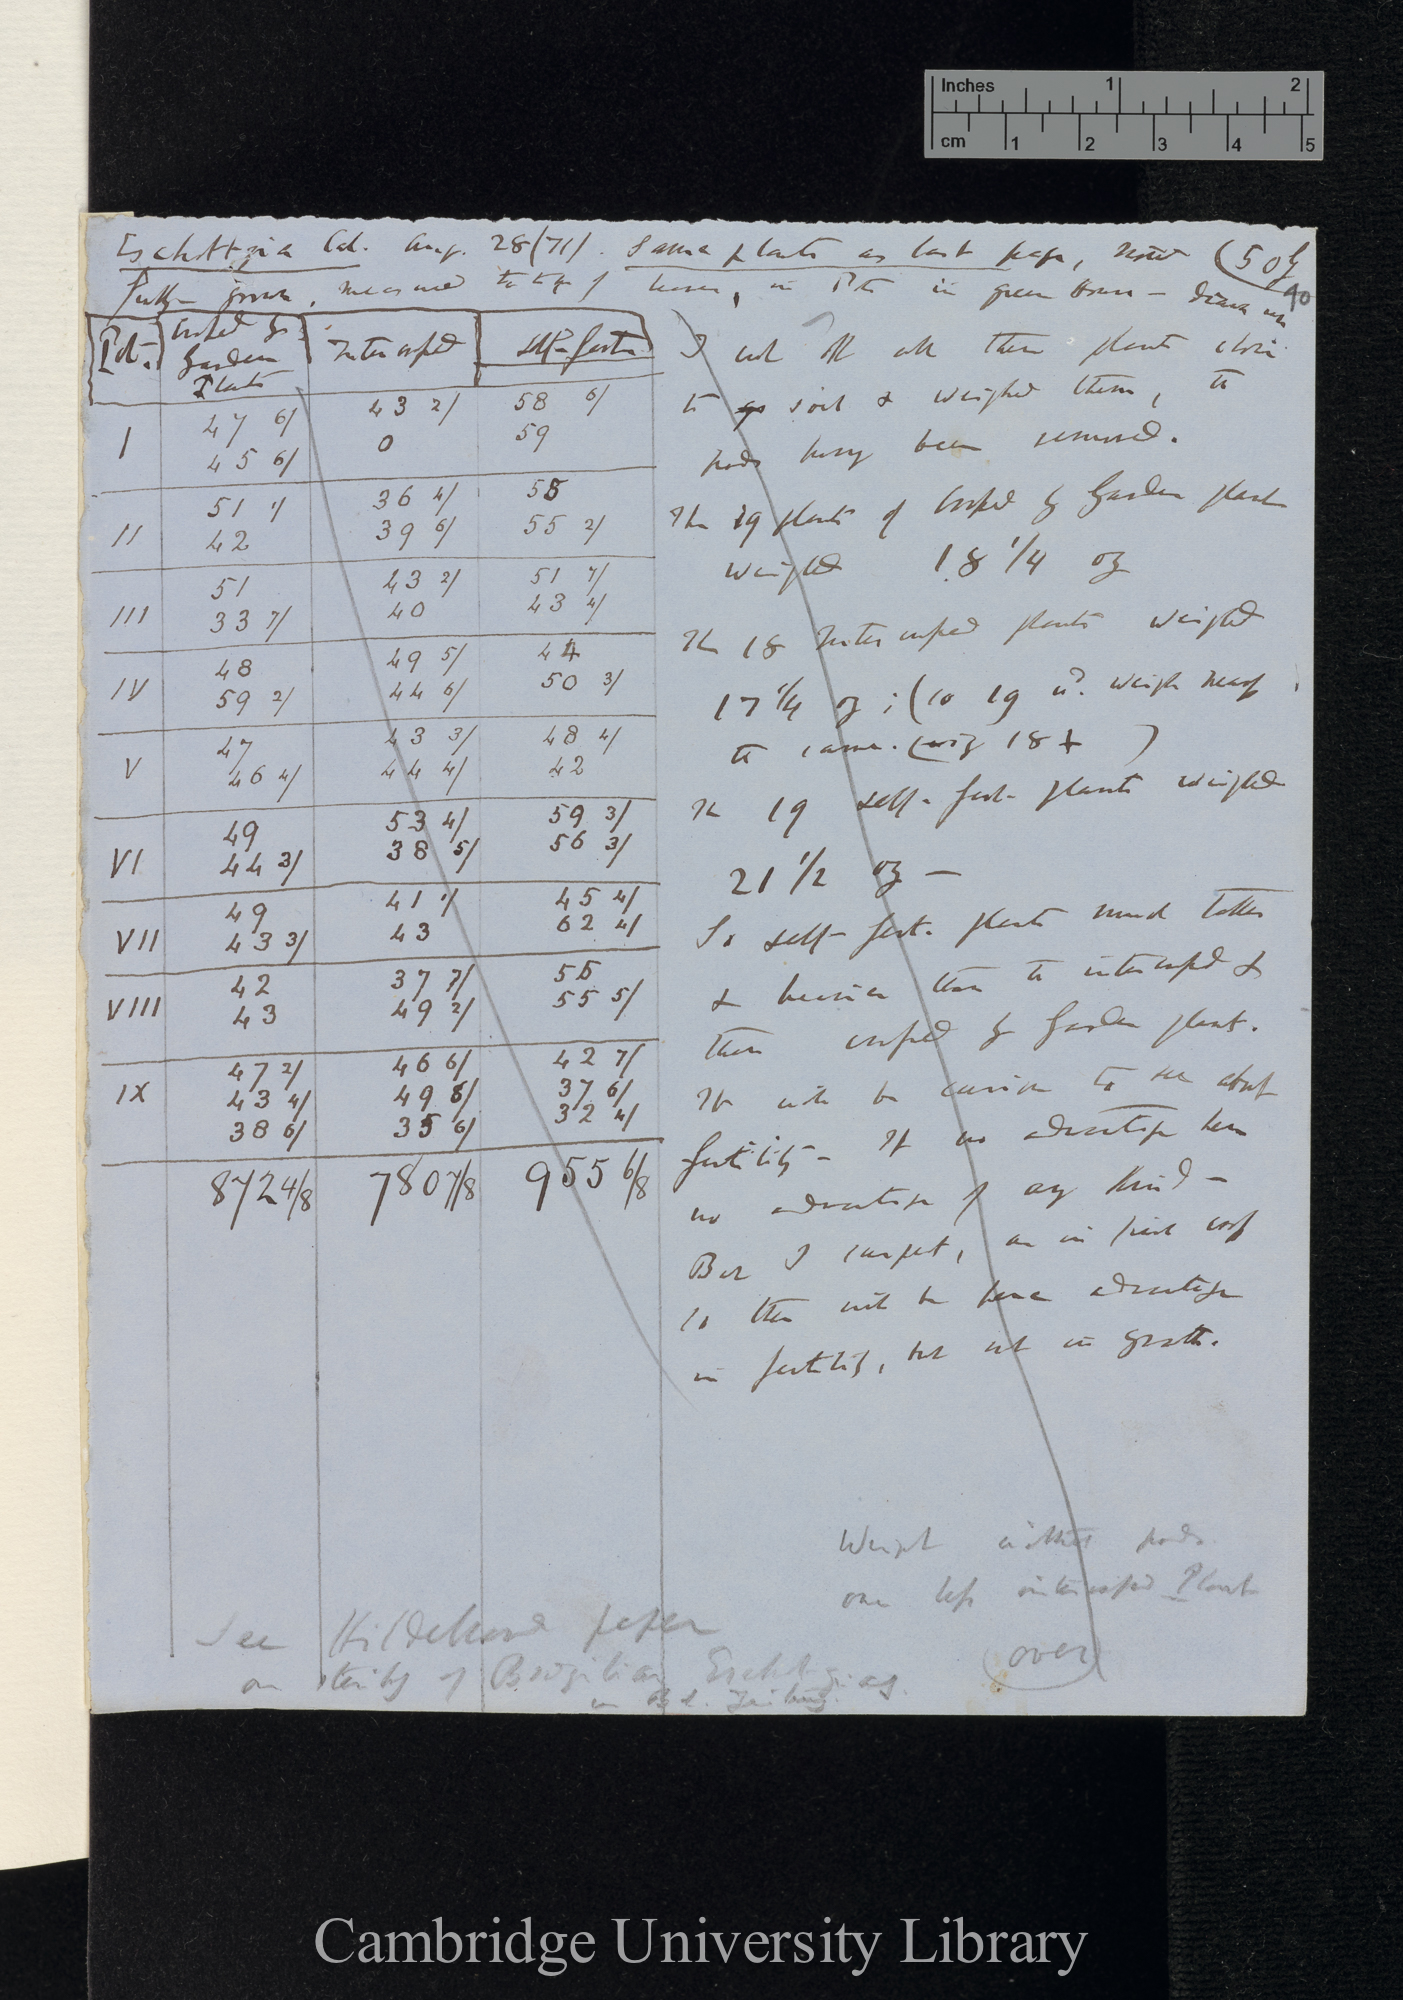 Inches 1 2
cm 1 2 3 4 5
Eschscholtzia Cal. Aug. 28 (71). Same plants as last page, now (50
90
Fully grown, measured to tip of leaves, in Pots in green House —
Pot. Crossed by Garden Plants Intercrossed self-fert.
I 47 6/ 43 2/ 58 6/
45 6/ 0 59
II 51 1/ 36 4/ 58
42 39 6/ 55 2/
III 51 43 2/ 51 7/
33 7/ 40 43 4/
IV 48 49 5/ 44
59 2/ 44 6/ 50 3/
V 47 43 3/ 48 4/
46 4/ 44 4/ 42
VI 49 53 4/ 59 3/
44 3/ 38 5/ 56 3/
VII 49 41 1/ 45 4/
43 3/ 43 62 4/
VIII 42 37 7/ 55
43 49 2/ 55 5/
IX 47 2/ 46 6/ 42 7/
43 4/ 49 37 6/
38 6/ 35 6/ 32 4/
872 4/8 780 7/8 955 6/8
I cut off all these plants close
to soil & weighed them, the
pods having been removed.
The 19 plants of Crossed by Garden plant
weighed 18 1/4 oz
The 18 Intercrossed plants weighed
17 1/4 oz; (so 19 wd. weigh nearly
the same. (viz 18 + )
The 19 self-fert. plants weighed
21 1/2 oz —
So self-fert. plants much taller
& heavier than the intercrossed &
than crossed by Garden plant.
It will be curious to see about
fertility — If no advantage here
no advantage of any kind —
But I suspect, as in first cross
so there will be some advantage
in fertility, but not in growth.
Weight without pods
one less intercrossed Plant
(over)
See Hildebrand paper
on sterility of Brazilian Eschscholtzias
in Bot. Zeitung.
Cambridge University Library